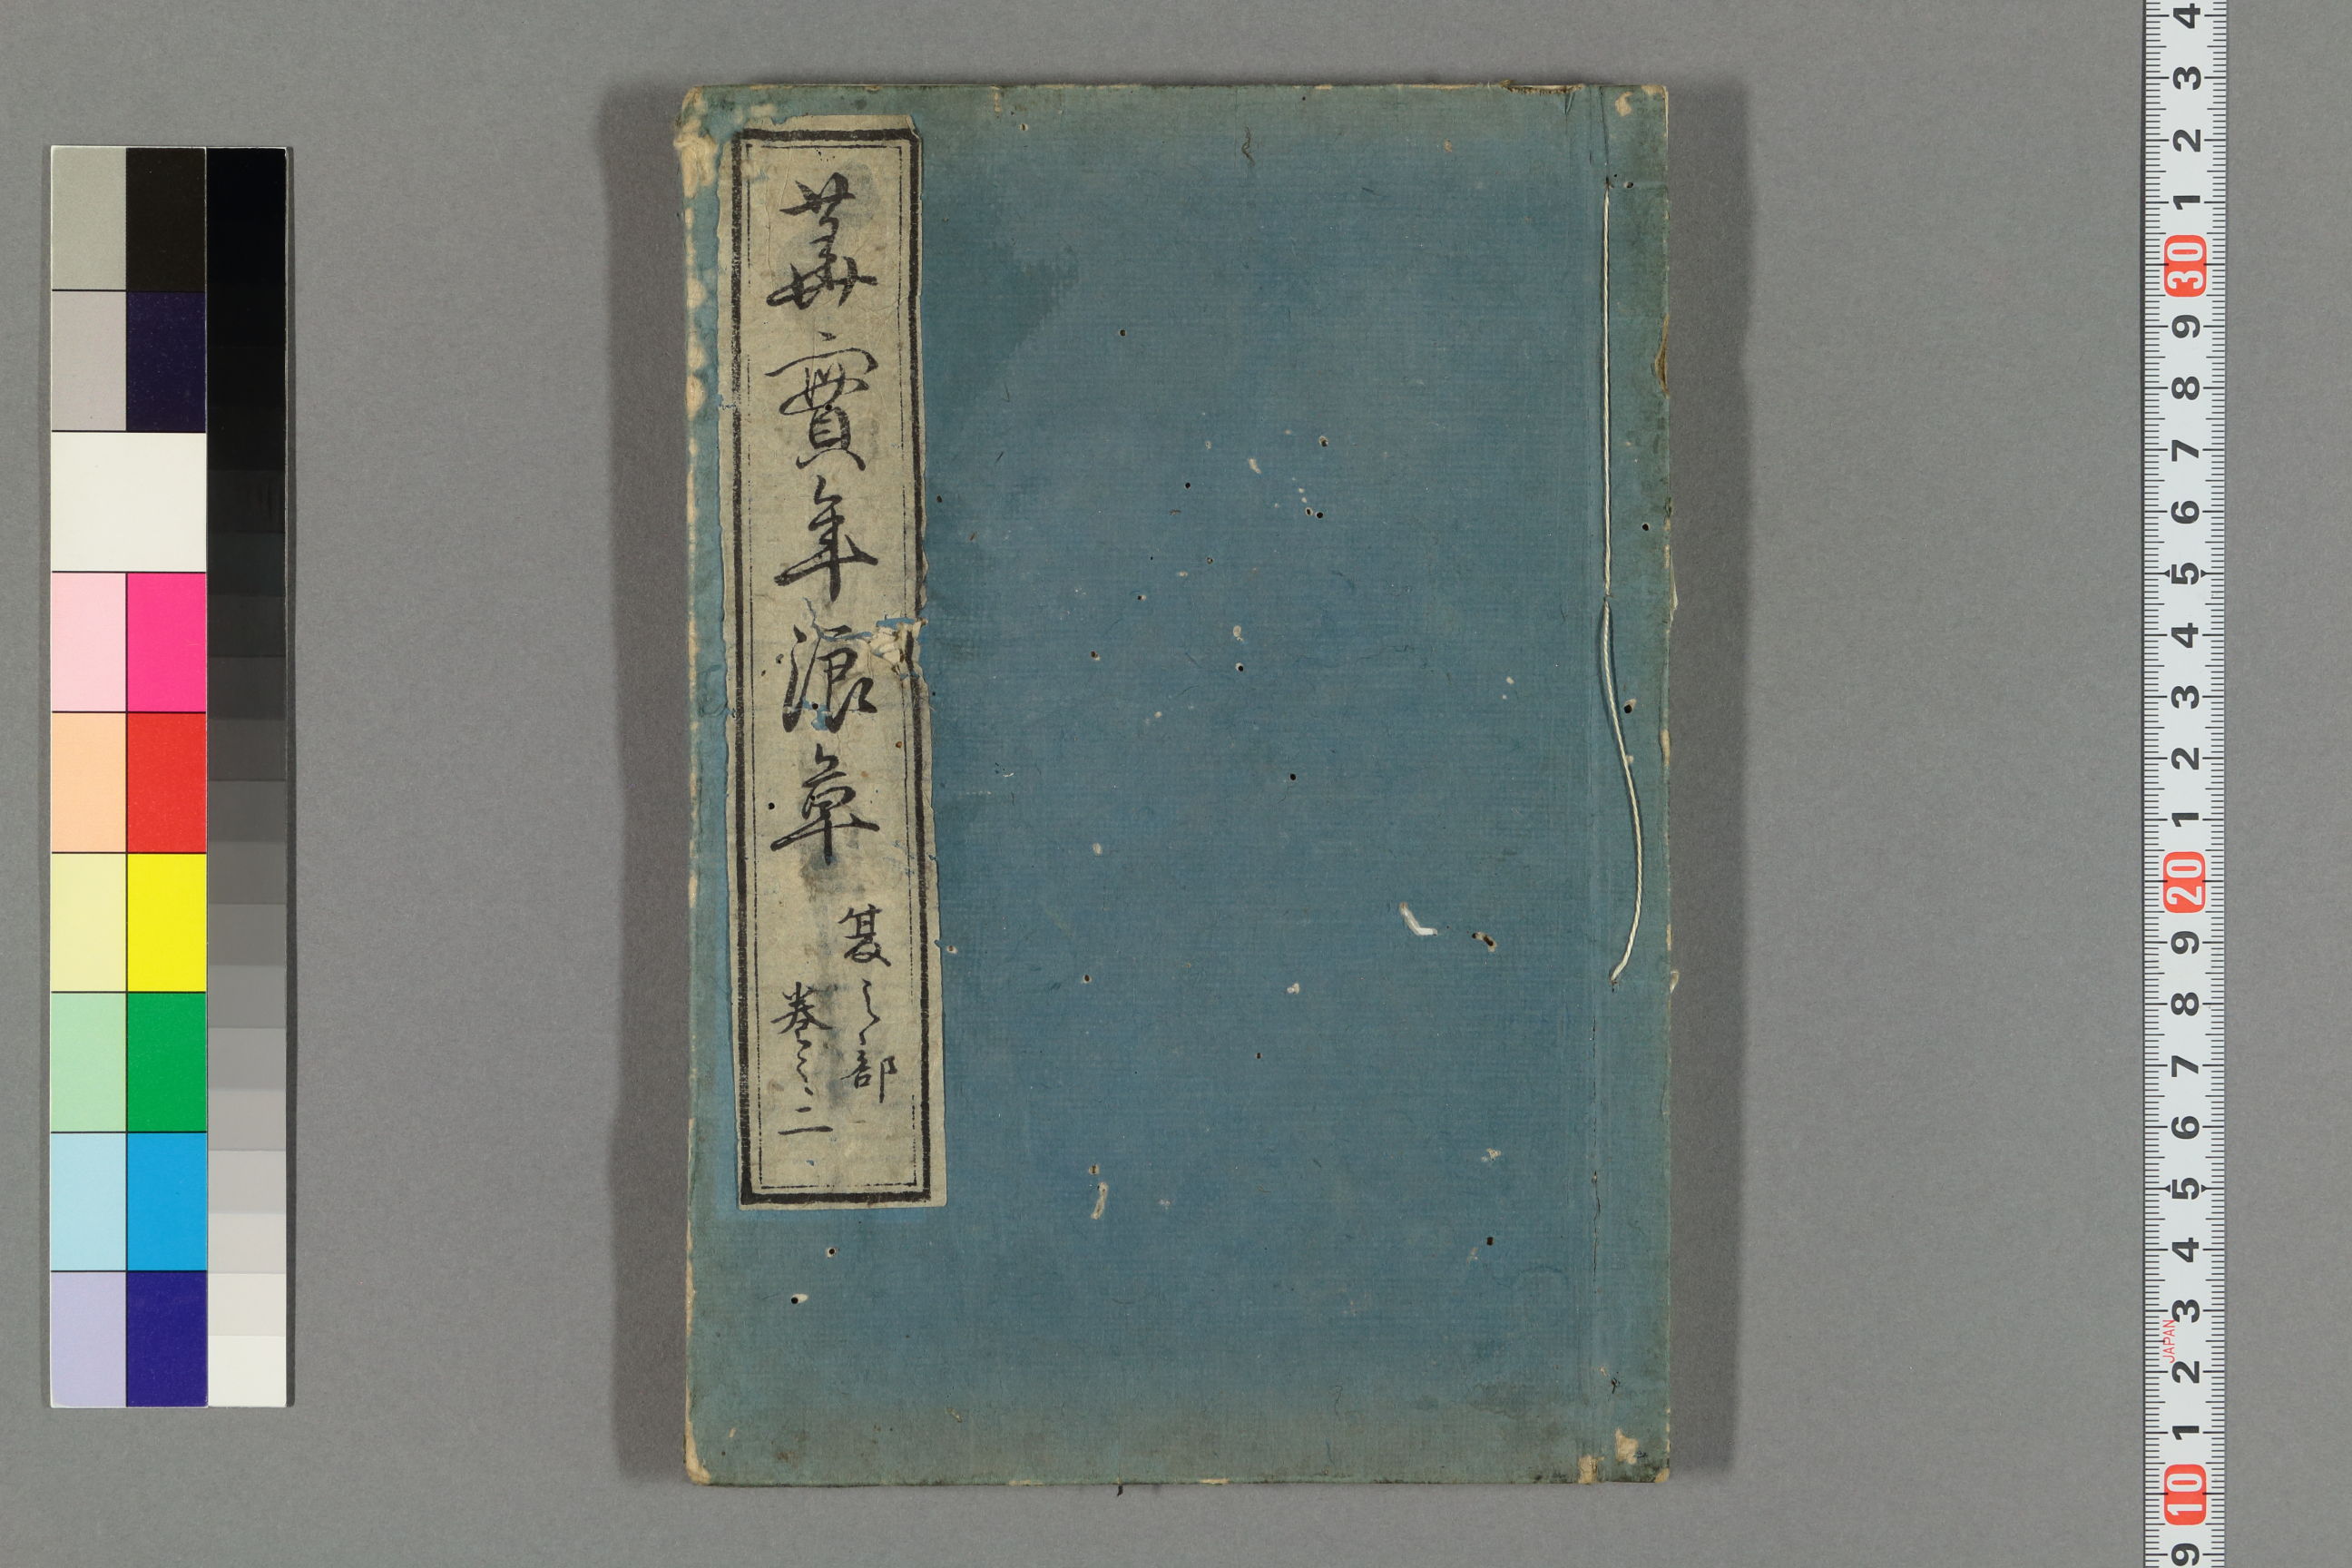 華實年浪草
夏之部
巻之二
4
3
2
1
30
9
8
7
6
5
4
3
2
1
20
9
8
7
6
5
4
3
JAPAN
2
1
10
9